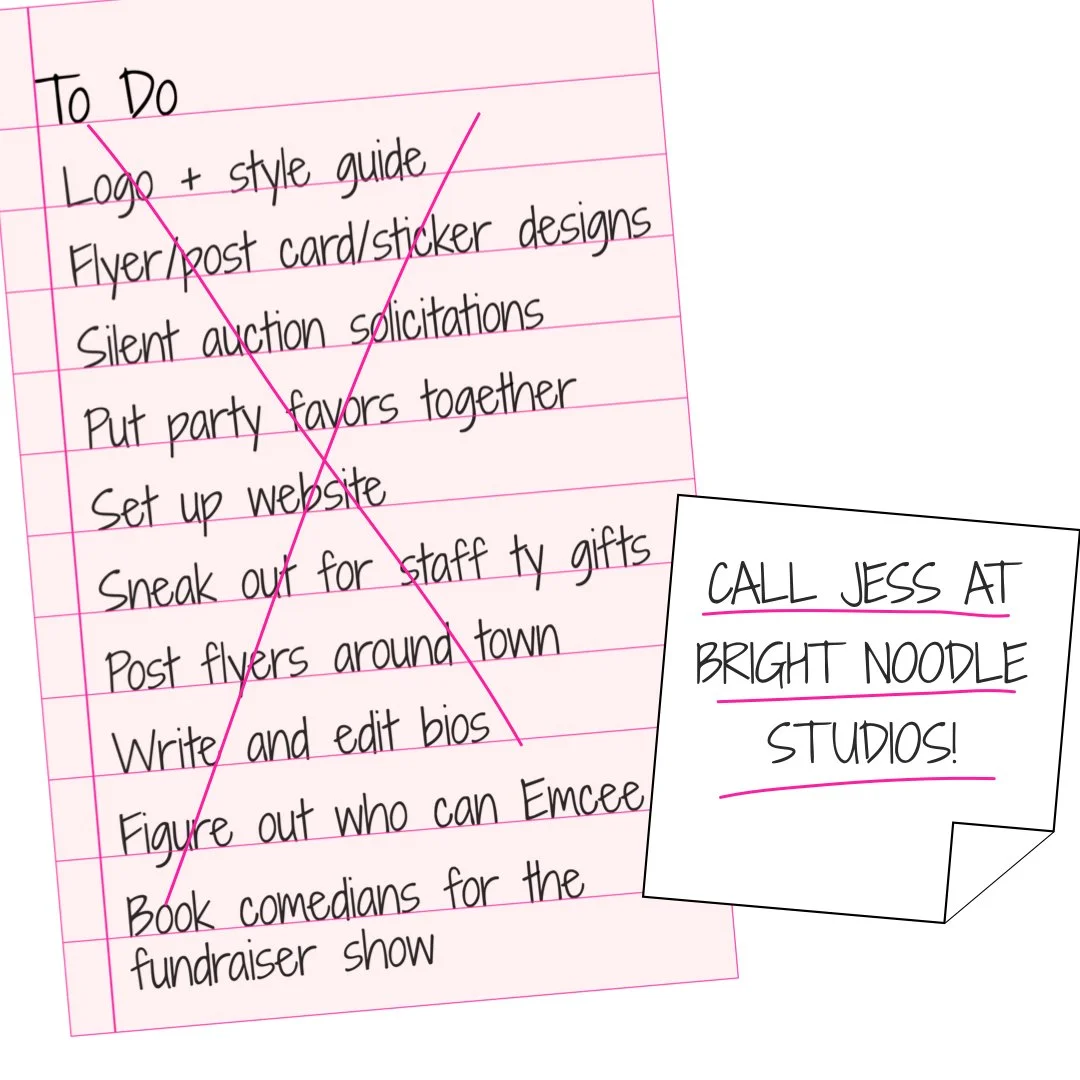 To Do
Logo + style guide
Flyer/post card/sticker designs
Silent auction solicitations
Put party favors together
Set up website
Sneak out for staff ty gifts
Post flyers around town
Write and edit bios
Figure out who can Emcee
Book comedians for the
fundraiser show
CALL JESS AT
BRIGHT NOODLE
STUDIOS!